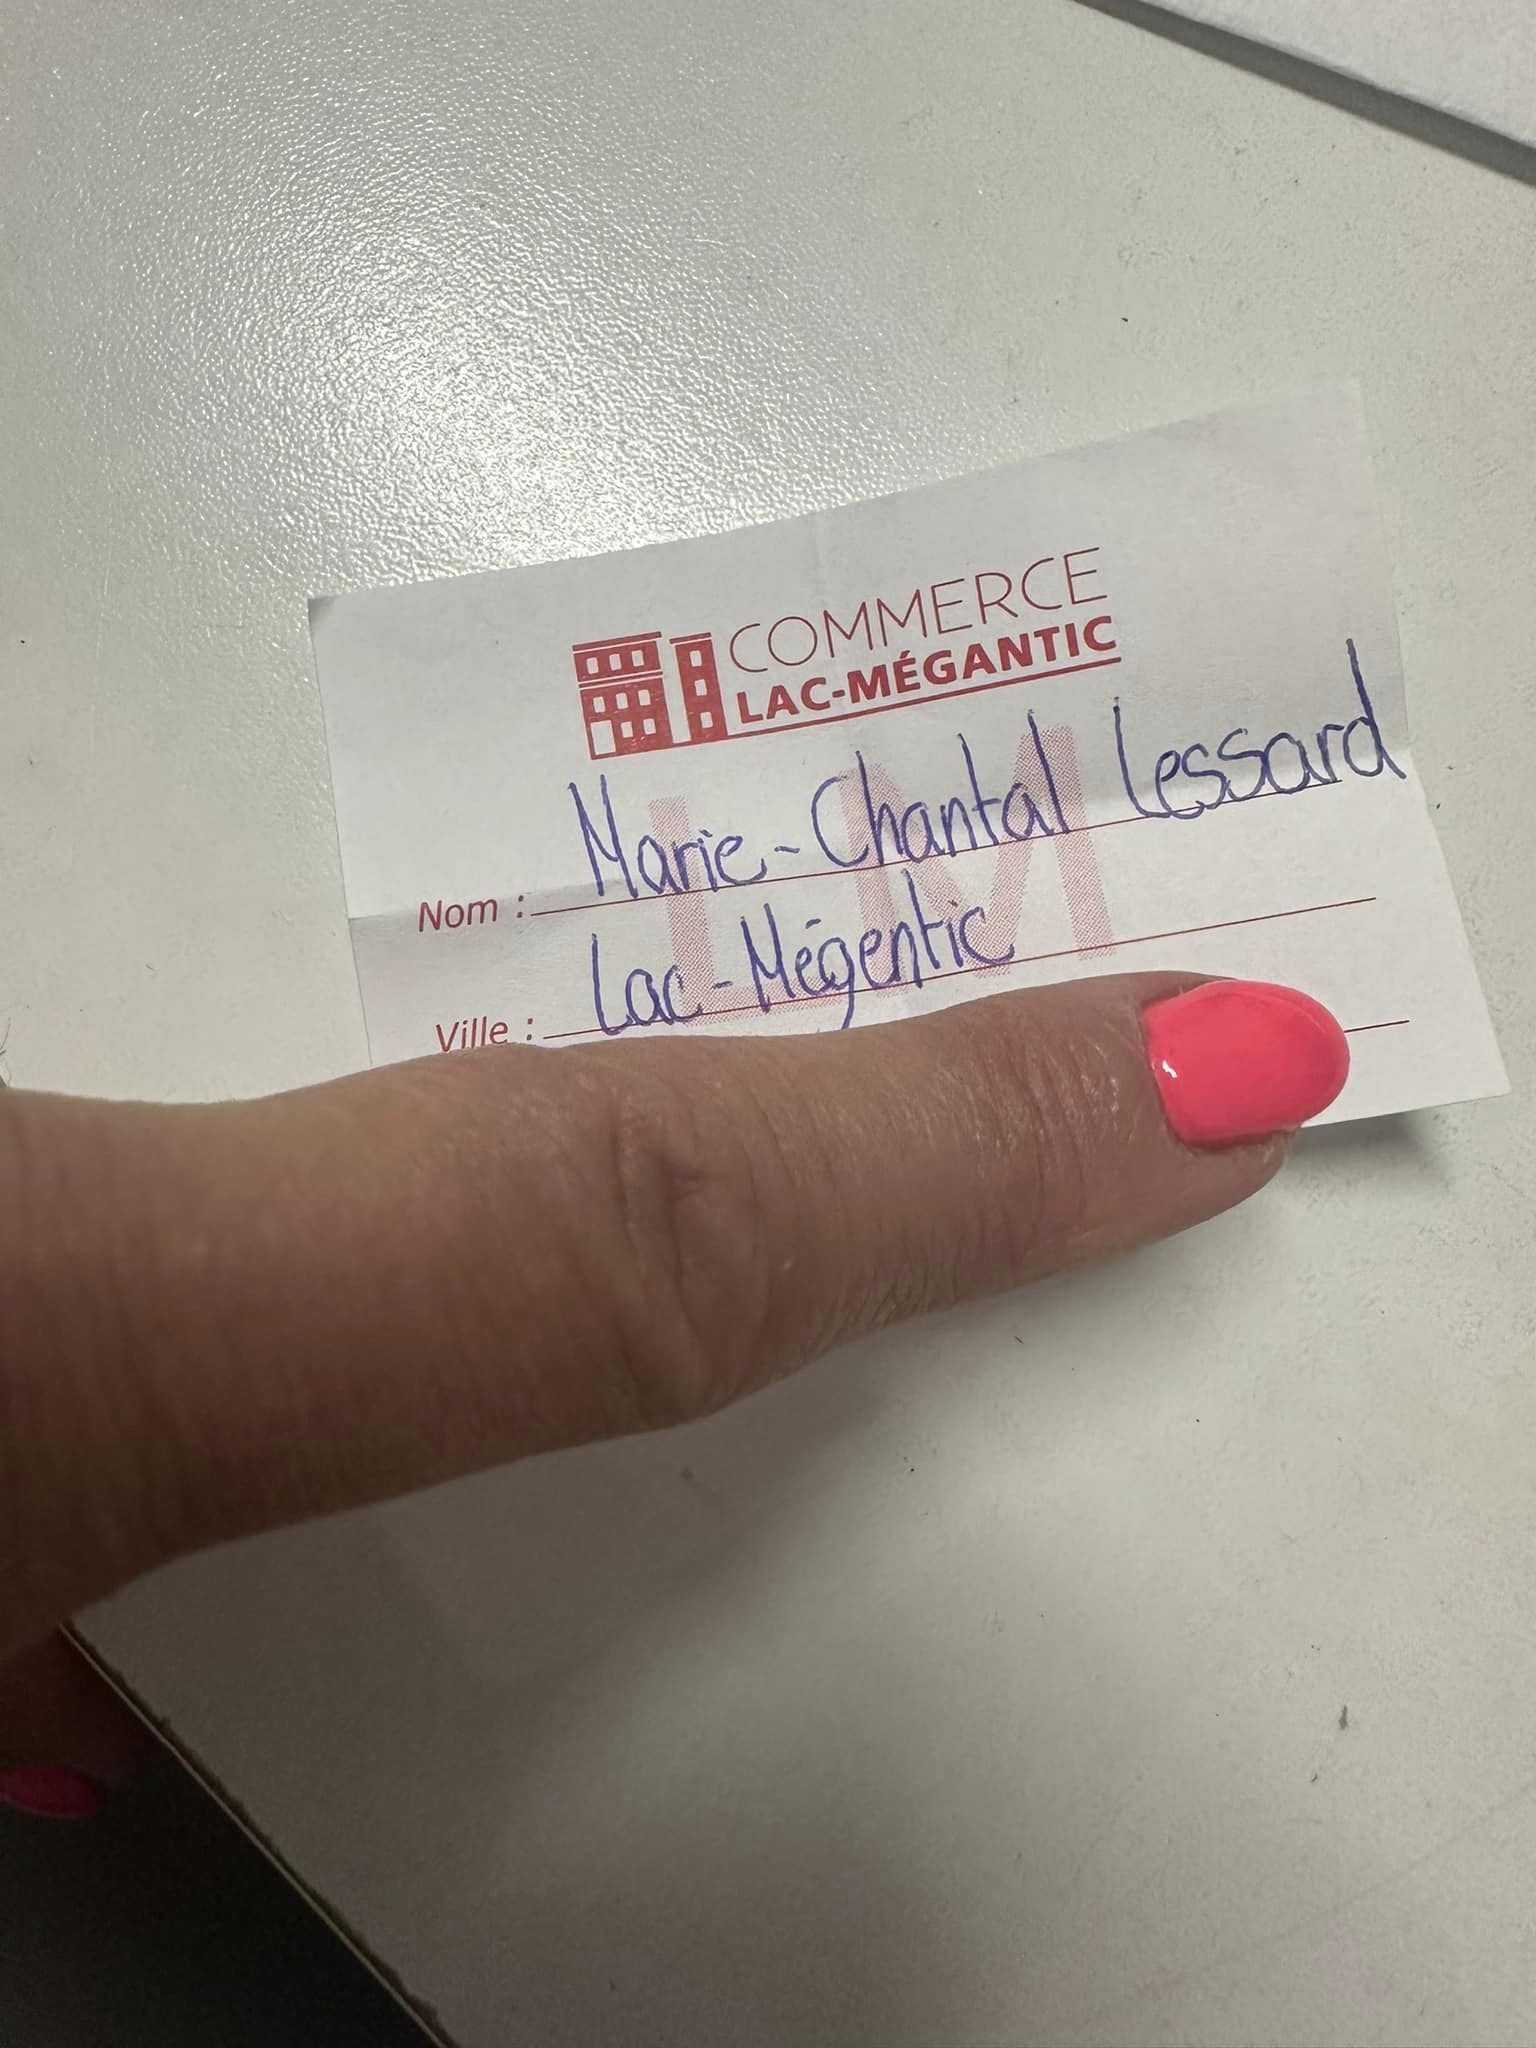 COMMERCE
LAC-MÉGANTIC
Nom : Marie-Chantal Lessard
Ville : Lac-Mégentic
LM